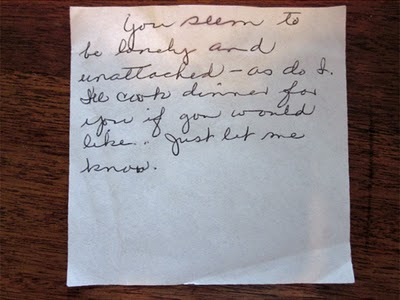 You seem to
be lonely and
unattached - as do I.
I'll cook dinner for
you if you would
like.. Just let me
know.